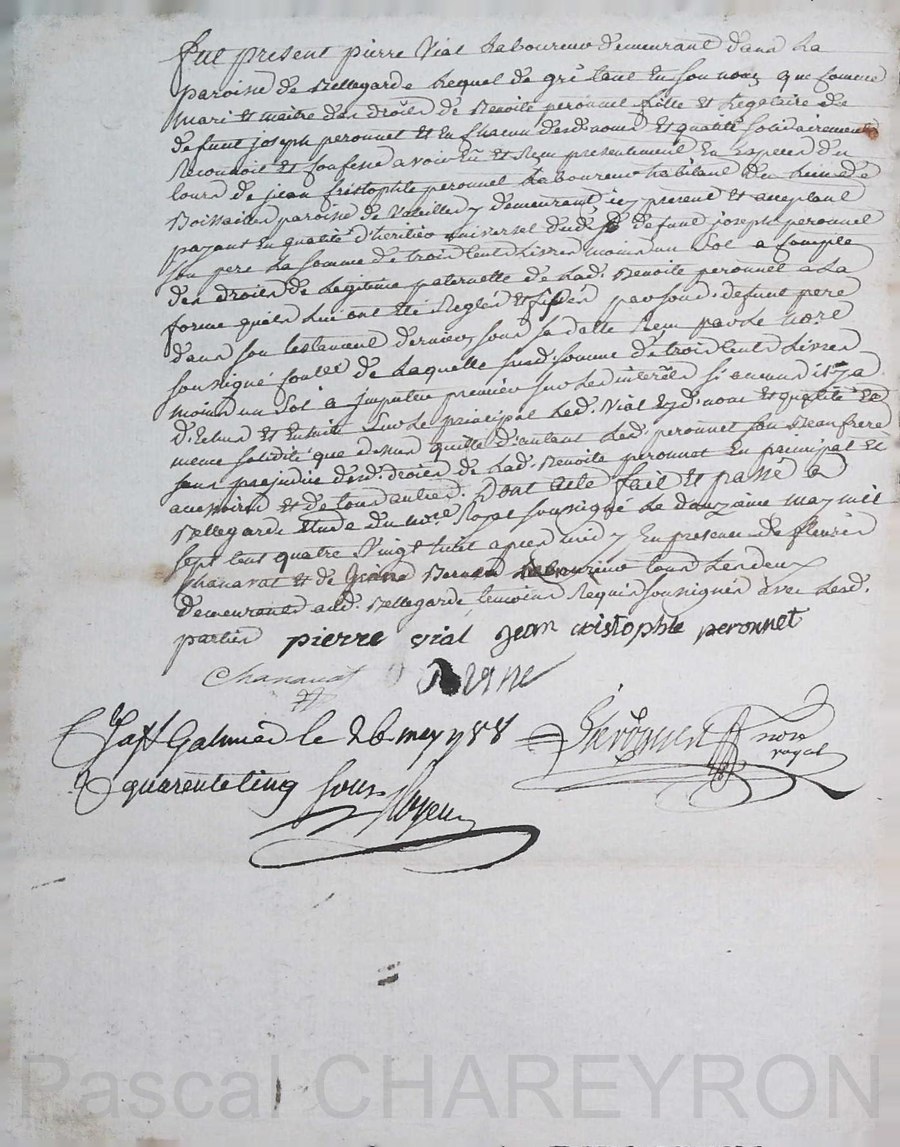 fut present pierre Vial Laboureur demeurant dans La
paroisse de Bellegarde Lequel de gré tant En son nom que Comme
mari et maitre des droits de Benoite peronnet fille et Legataire de
defunt joseph peronnet et En chacun desd. noms Et qualité solidairement
Reconnoit et Confesse avoir Eu et Reçu presentement En especes du
Cours de jean Cristophle peronnet Laboureur habitant du Lieu de
Boissailles paroisse de demeurant icy present et acceptant
payant En qualité d'heritier universel dud. defunt joseph peronnet
son pere La somme de trois Cent Livres moins un sol a Compte
des droits de Legitime paternelle de Lad. Benoite peronnet a La
forme quels Lui ont été Reglés Et fixés par sond. defunt pere
dans son testament dernier sous sa datte Reçu par Le nore
soussigné de Laquelle susd. somme de trois Cent Livres
moins un sol a imputer premier sur Les interêts si aucun il y a
d'Echus Et Ensuite sur Le principal Led. Vial Esd. nom Et qualité Et
meme solidité que dessus quitte d'autant Led. peronnet son Beaufrere
sans prejudice desd. droits de Lad. Benoite peronnet En principal Et
accessoires Et de tous autres. Dont acte fait Et passé a
Bellegarde Etude du nore Royal soussigné Le douzieme may mil
sept Cent quatre Vingt huit apres midy En presence de fleury
Chanavat et de Laboureur tous Les deux
demeurants aud. Bellegarde temoins Requis soussignés avec Lesd.
parties pierre vial jean cristophle peronnet
Chanavat
St Galmier le 26 mey 1788 nore
royal
quarente cinq sous
Pascal CHAREYRON